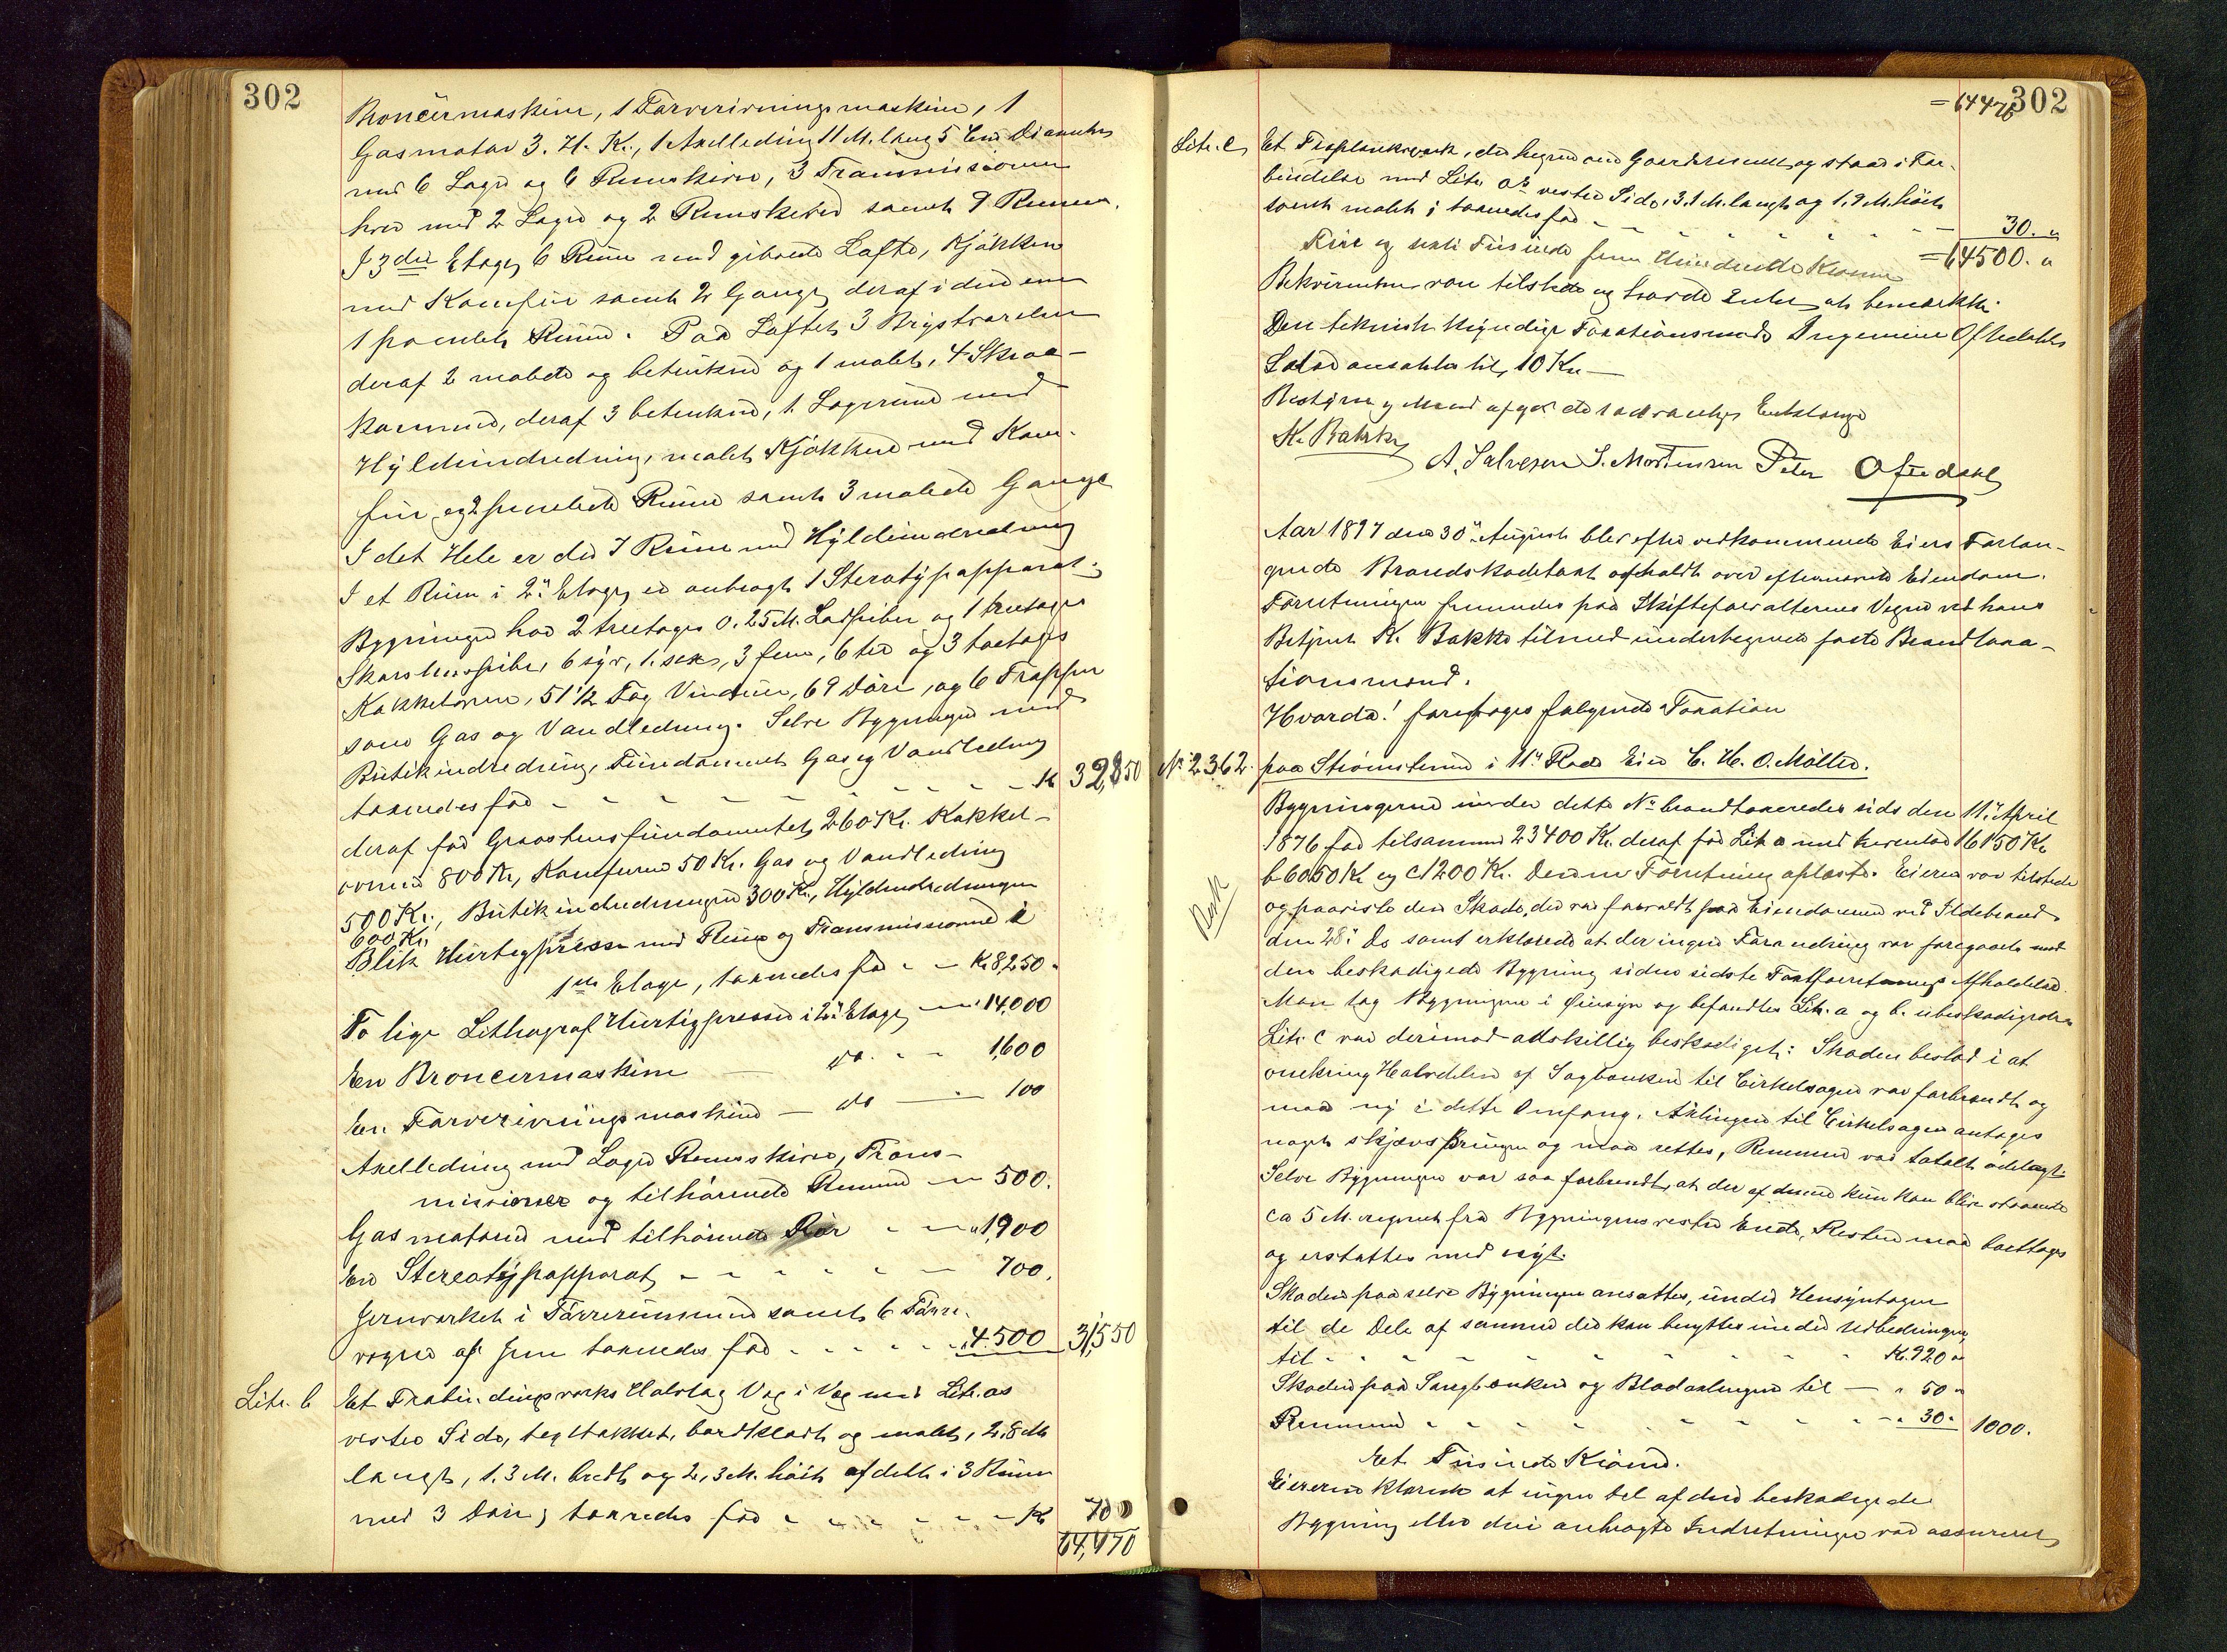 302
Broncermaskine, 1 Farverivningsmaskine, 1
Gasmotor 3. H. Kr., 1 Axelledning 11 M. lang 5 Cm Diameter
med 6 Lagre og 6 Remskiver, 3 Transmissioner
hver med 2 Lagre og 2 Remskiver samt 9 Remme.
I 3die Etage, 6 Rum med gibsede Lofte, Kjøkken
med Komfur samt 2 Gange, deraf i den ene
1 panelet Rum. Paa Loftet 3 Brystværelser
deraf 2 malede og betrukne og 1 malet, 4 Skraa-
kammere, deraf 3 betrukne, 1 Lagerrum med
Hyldeindredning, malet Kjøkken med Kom-
fur og 2 panelede Rum samt 3 malede Gange
I det Hele er der 7 Rum med Hyldeindredning
I et Rum i 2. Etage er anbragt 1 Sterotypapparat.
Bygningen har 2 treetages 0.25 M. Ladpiber og 1 treetages
Skorstenspibe, 6 syv, 1 sex, 3 fem, 6 tre og 3 toetages
Kakkelovne, 51 1/2 Fag Vinduer, 69 Døre, og 6 Trapper
som Gas og Vandledning. Selve Bygningen med
Butikindredning, Fundament Gas og Vandledning
taxeredes for - - - - - - - Kr 32,850
deraf for Graastensfundamentet 260 Kr. Kakkel-
ovnene 800 Kr, Komfurene 50 Kr. Gas og Vandledning
500 Kr., Butikindredningen 300 Kr, Hyldeindredningen
600 Kr.
Blik Hurtigpresse med Rem og Transmissioner i
1ste Etage, taxeredes for - - Kr. 8,250 -
To lige Lithograf Hurtigpresser i 2. Etage - " 14,000
En Broncermaskine - do. - - 1,600
En Farverivningsmaskine - do - 100
Axelledning med Lagre Remskiver, Trans-
missioner og tilhørende Remme - " 500.
Gasmotoren med tilhørende Rør - - " 1,900
En Stereotypapparat - - - - - 700.
Jernværket i Tørrerummene samt 6 Tørre-
vogne af Jern taxeredes for - - - - - " 4.500 31,550
Litr. b Et Frabindingsværks Halvtag Væg i Væg med Litr. as
vestre Side, tegltækket, bordklædt og malet, 2,8 M
langt, 1.3 M. bredt og 2,3 M. høit afdelt i 3 Rum
med 3 Døre, taxeredes for - - - - - - Kr 70
64,470
302
= 6447
Litr. c Et Træplankeværk, der hegner om Gaardsrummet og staar i For-
bindelse med Litr. as vestre Side, 3.1 M. langt og 1.9 M. høit
samt malet i taxeredes for - - - - - - - 30. "
Fire og sexti Tusinde fem Hundrede Kroner = 64500. "
Rekvirenten var tilstede og havde Intet at bemærke.
Den teknisk kyndige Taxationsmands Ingeniør Oftedahls
Salær ansattes til 10 Kr -
Bestyrer og Mænd afgav de lovbefalede
K. Bakke
A. Salvesen S. Mortensen Peter Oftedahl
Aar 1897 den 30. August blev efter vedkommende Eiers Forlan-
gende Brandskadetaxt afholdt over efternævnte Eiendom.
Forretningen fremmedes paa Skifteforvalterens Vegne ved hans
Betjent K. Bakke tilmed undertegnede faste Brandtaxa-
tionsmænd.
Hvorda! foretoges følgende Taxation
No 2362. paa Strømstenen i 11. Rode Eier C. H. O. Møller.
Bygningerne under dette No brandtaxeredes sidst den 11. April
1876 for tilsammen 23400 Kr. deraf for Litr. a med Inventar 16150 Kr.
b 6050 Kr og c 1200 Kr. Denne Forretning oplæstes. Eieren var tilstede
og paaviste den Skade, der var forvoldt paa Eiendommen ved Ildebrand
den 28. ds samt erklærede at der ingen Forandring var foregaaet med
den beskadigede Bygning siden sidste Taxtforretnings Afholdelse.
Man tog Bygningerne i Øiesyn og befandtes Litr. a og b. ubeskadigede
Litr. c var derimod adskillig beskadiget: Skaden bestod i at
omkring Halvdelen af Sagbænken til Cirkelsagen var forbrændt og
maa ny i dette Omfang. Axlingen til Cirkelsagen antages
noget skjævsprungen og maa rettes, Remmene var totalt ødelagt.
Selve Bygningen var saa forbrændt, at der af denne kun kan blive staaende
ca 5 M. regnet fra Bygningens vestre Ende, Resten maa borttages
og erstattes med nyt.
Skaden paa selve Bygningen ansattes, under Hensyntagen
til de Dele af samme der kan benyttes under Udbedringen,
til - - - - - - - - Kr. 920 "
Skaden paa Sagbænken og Bladaxlingen til - " 50 "
Remmene - - - - - - - - " 30 " 1000.
Et Tusinde Kroner.
Eieren erklærede at ingen Del af den beskadigede
Bygning eller den anbragte Indretninger var assureret